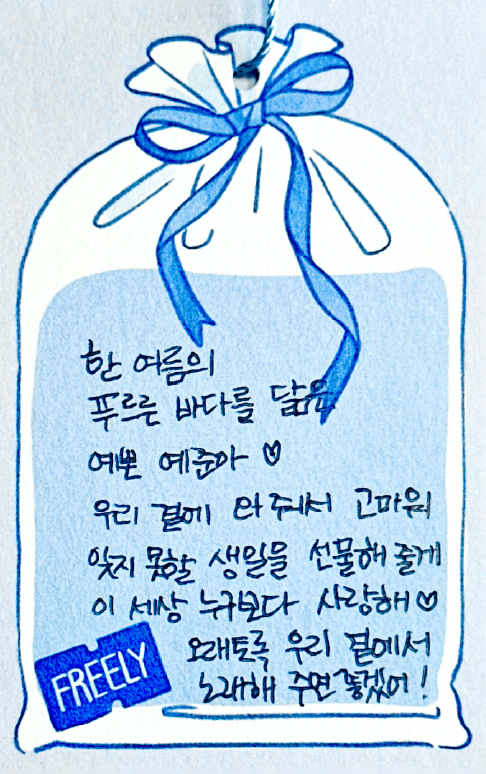 한 여름의
푸르른 바다를 닮은
예쁜 예준아 ♡
우리 곁에 와 줘서 고마워
잊지 못할 생일을 선물해 줄게
이 세상 누구보다 사랑해 ♡
오래토록 우리 곁에서
노래해 주면 좋겠어!
FREELY